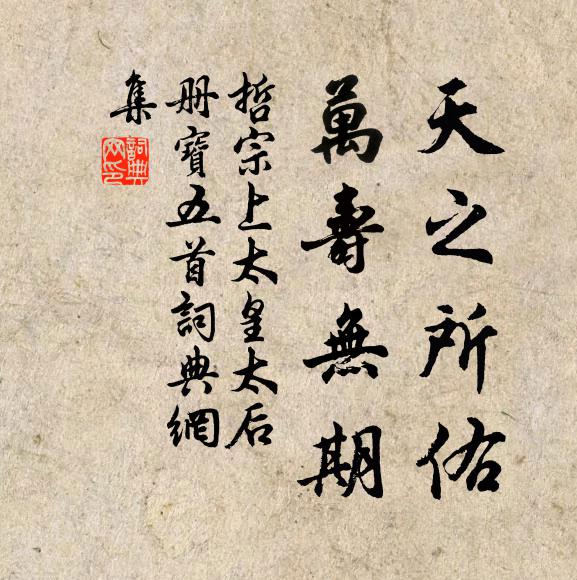 天之所佑
萬壽無期
哲宗上太皇太后
冊寶五首詞典網
集
詞典
网印